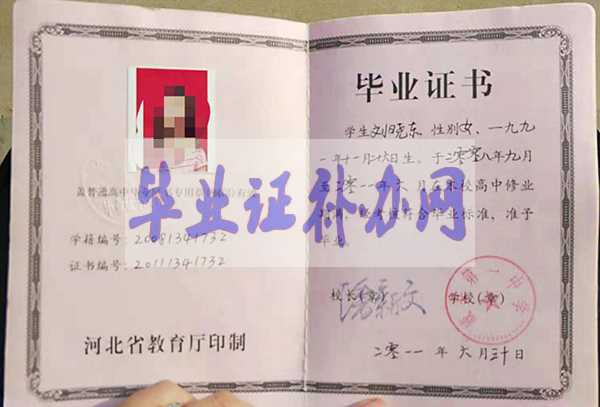 盖普通高中毕业证书专用章(钢印)有效
学籍编号:20081341732
证书编号:20111341732
河北省教育厅印制
毕业证书
性别女、一九九
一年十一月二十六日生,于二零零八年九月
至二零一一年六月在本校高中修业
准予
毕业。
校长(章)
学校(章)
第一中学
二零一一年六月三十日
毕业证补办网